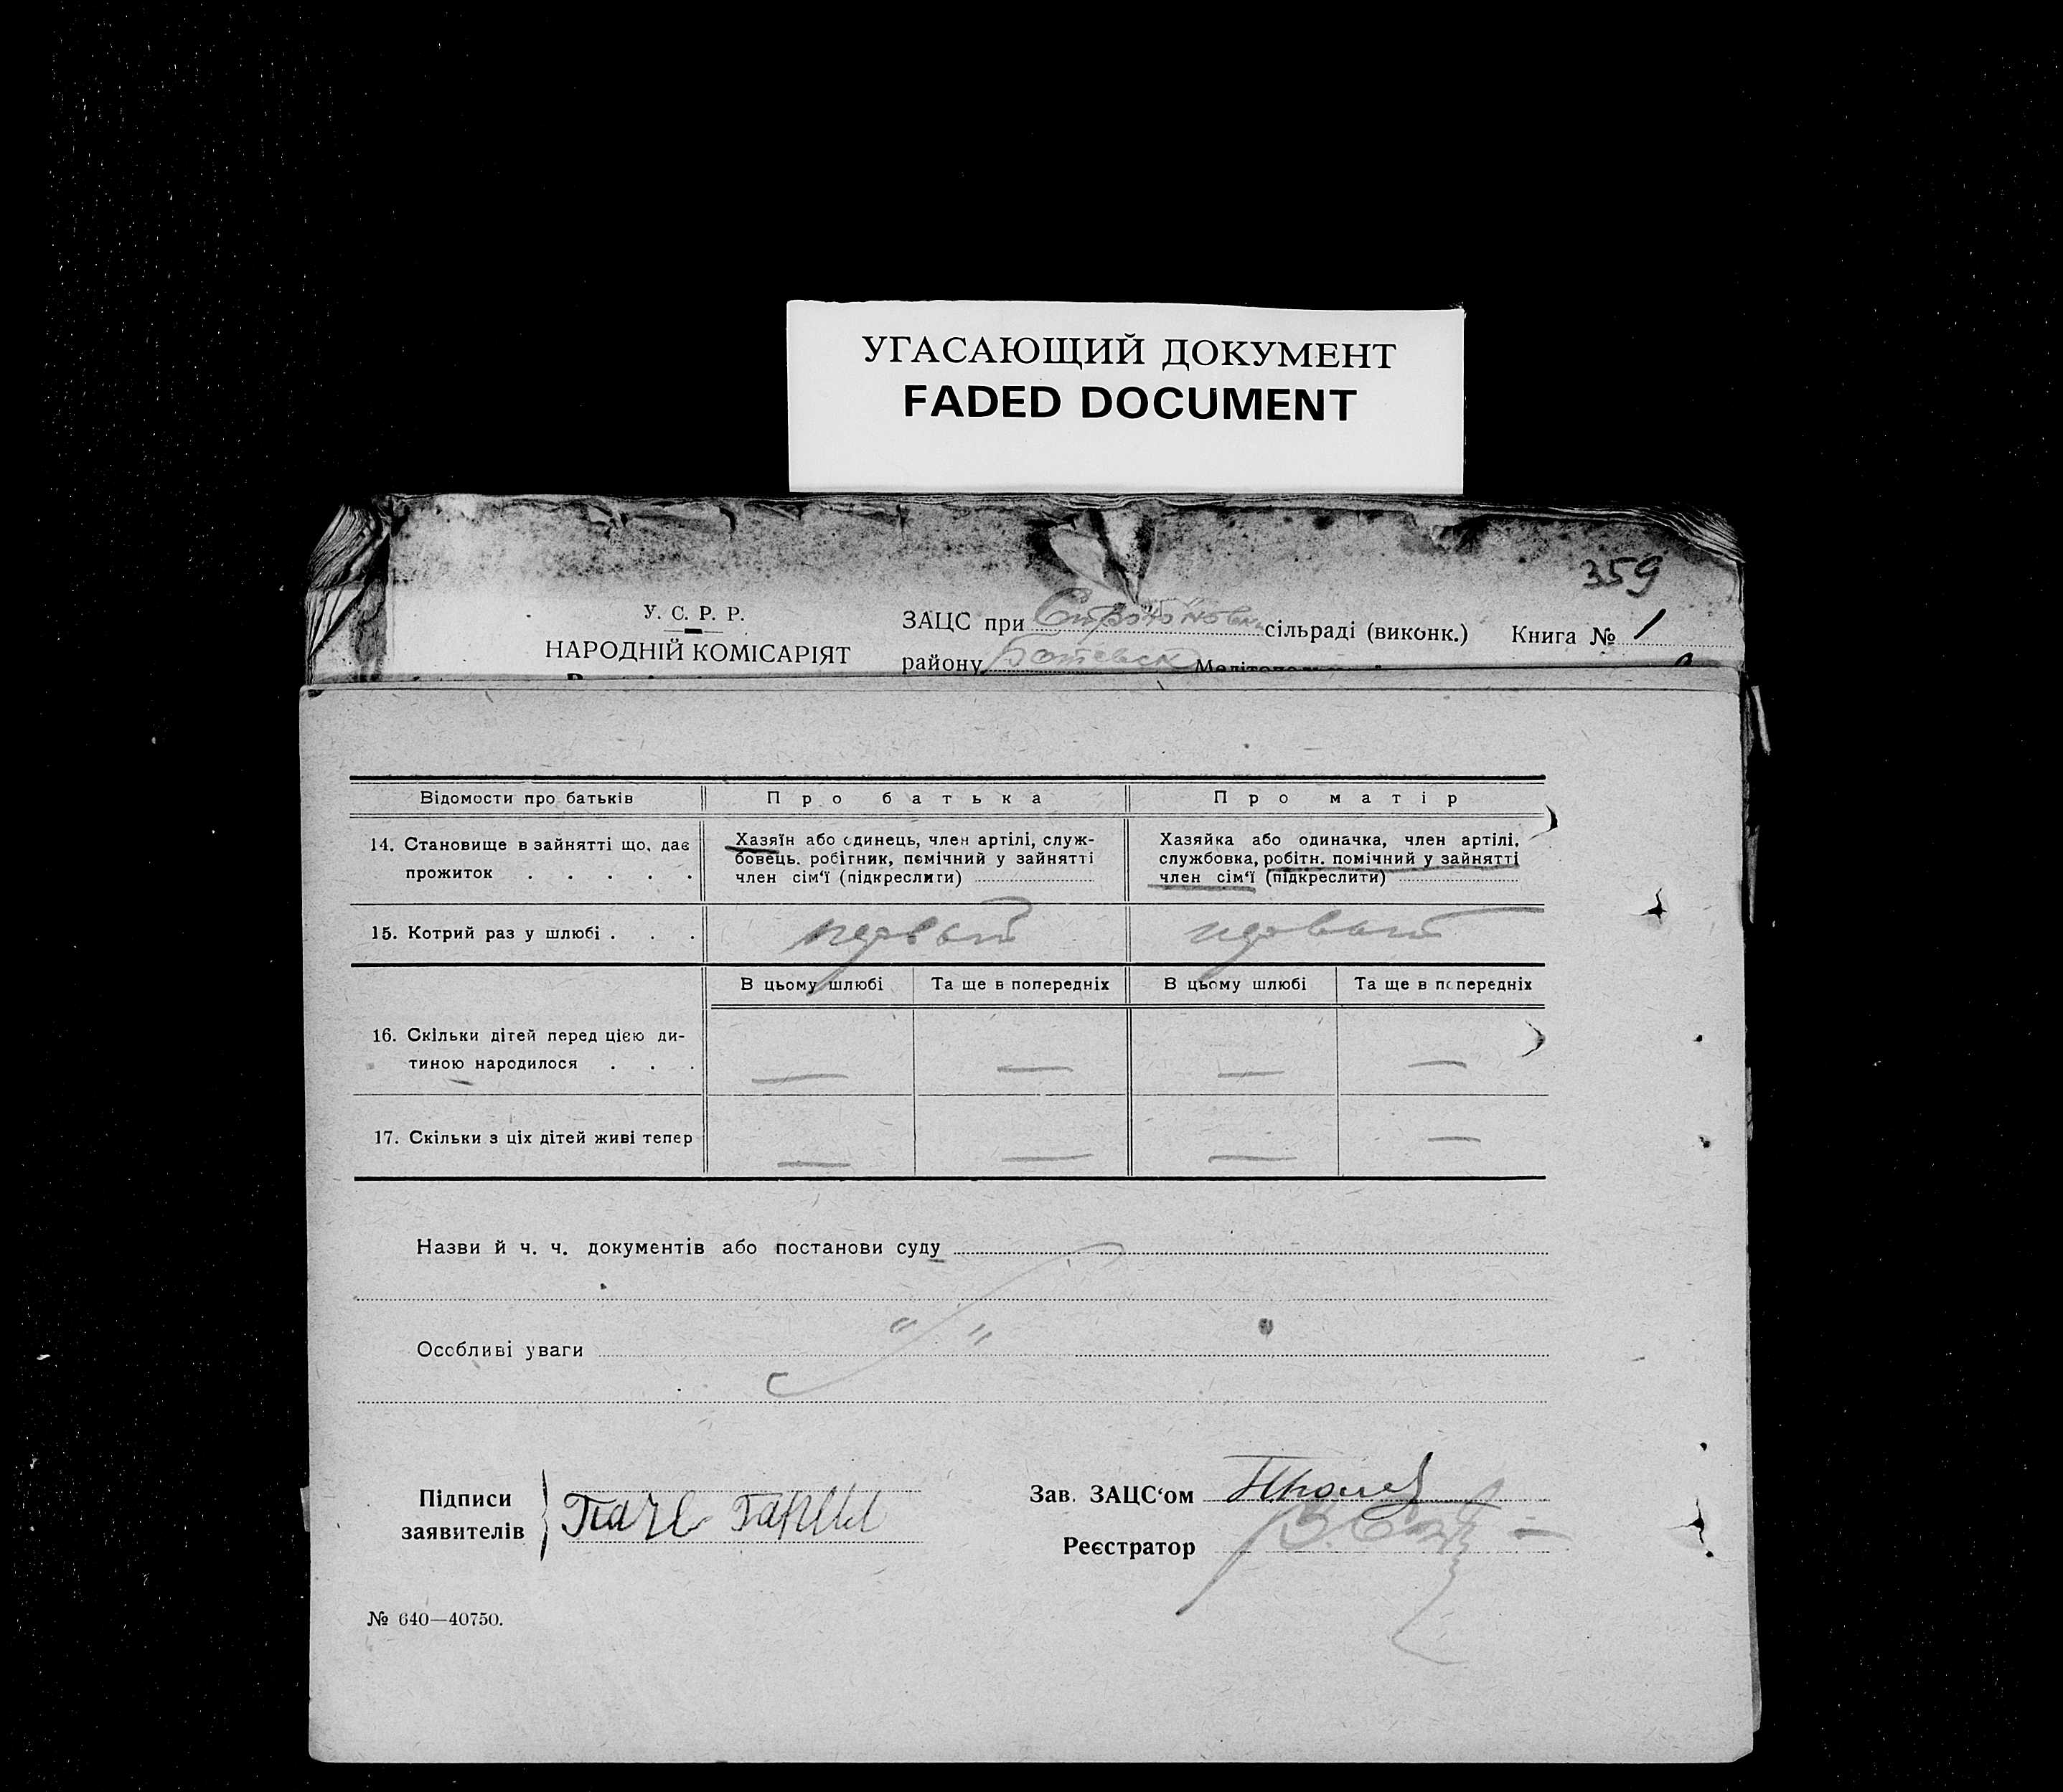 УГАСАЮЩИЙ ДОКУМЕНТ
FADED DOCUMENT
359
У. С. Р. Р.
НАРОДНІЙ КОМІСАРІЯТ
ЗАЦС при сільраді (виконк.) Книга № 1
району Ботевск
Відомости про батьків Про батька Про матір
14. Становище в зайнятті що, дає прожиток . . . . .
Хазяїн або одинець, член артілі, служ-
бовець, робітник, помічний у зайнятті
член сім‘ї (підкреслити)
Хазяйка або одиначка, член артілі,
службовка, робітн. помічний у зайнятті
член сім‘ї (підкреслити)
15. Котрий раз у шлюбі . . . первый первый
В цьому шлюбі Та ще в попередніх В цьому шлюбі Та ще в попередніх
16. Скільки дітей перед цією ди-
тиною народилося . . . — — — —
17. Скільки з ціх дітей живі тепер — — — —
Назви й ч. ч. документів або постанови суду
Особливі уваги " "
Підписи
заявителів
Зав. ЗАЦС‘ом
Реєстратор
№ 640—40750.